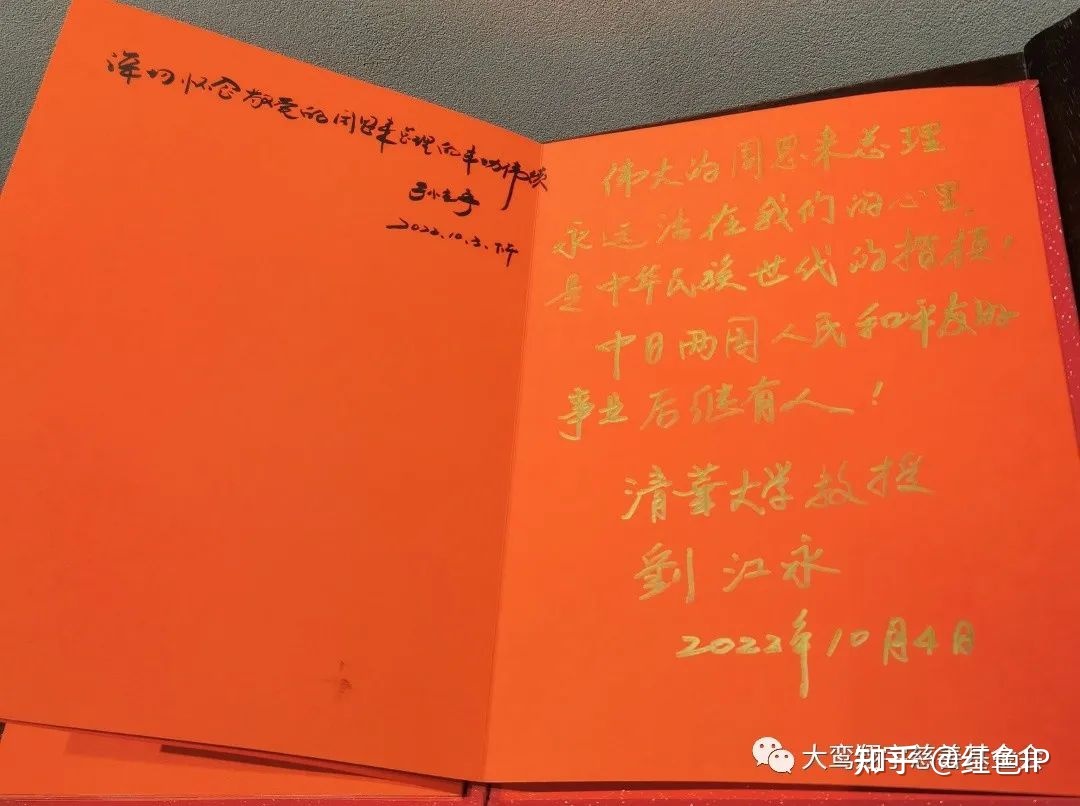 深切怀念敬爱的周恩来总理的丰功伟绩
2022.10.3.下午
伟大的周恩来总理
永远活在我们的心里,
是中华民族世代的楷模,
中日两国人民和平友好
事业后继有人!
清華大学教授
劉江永
2022年10月4日
大鸾翔宇慈善基金会
知乎 @红色IP